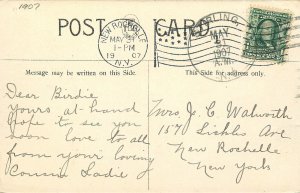 1907
POST CARD
NEW ROCHELLE
MAY 31
1-PM
1907
N.Y.
MAY
31
1907
A.M.
Message may be written on this Side.
This Side for address only.
Dear Birdie
Yours at hand
Hope to see you
soon love to all
from your loving
Cousin Sadie
Mrs J. C. Walworth
157 Sickles Ave
New Rochelle
New York